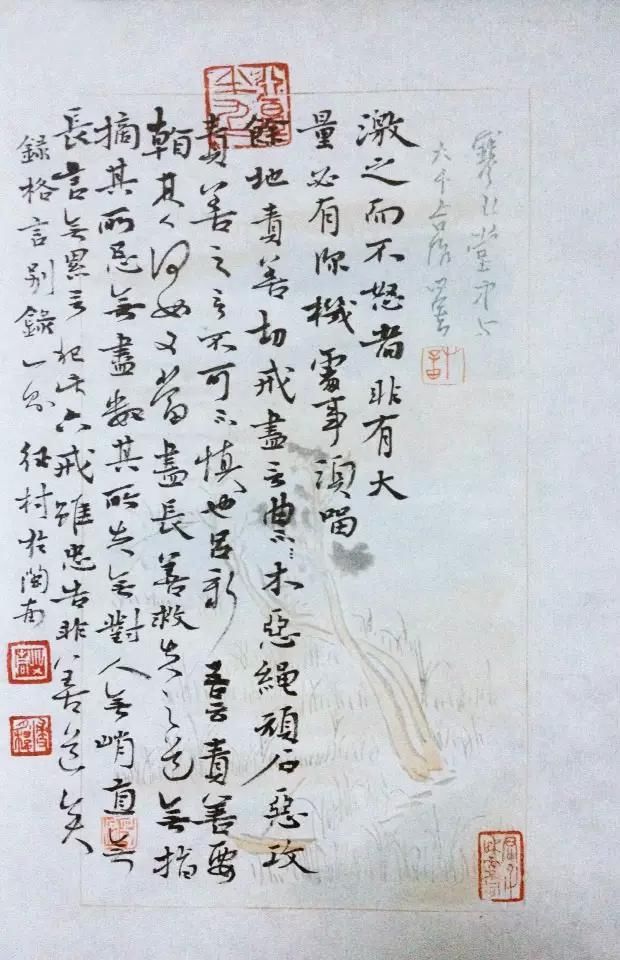 激之而不怒者非有大
量必有深機處事須留
餘地責善切戒盡言曲木惡繩頑石惡攻
責善之言不可不慎也呂新吾云責善要
看其人何如又當盡長善救失之道無指
摘其所忌無盡數其所失無對人無峭直無
長言無累言犯此六戒雖忠告非善道矣
錄格言別錄一則 村於閩南